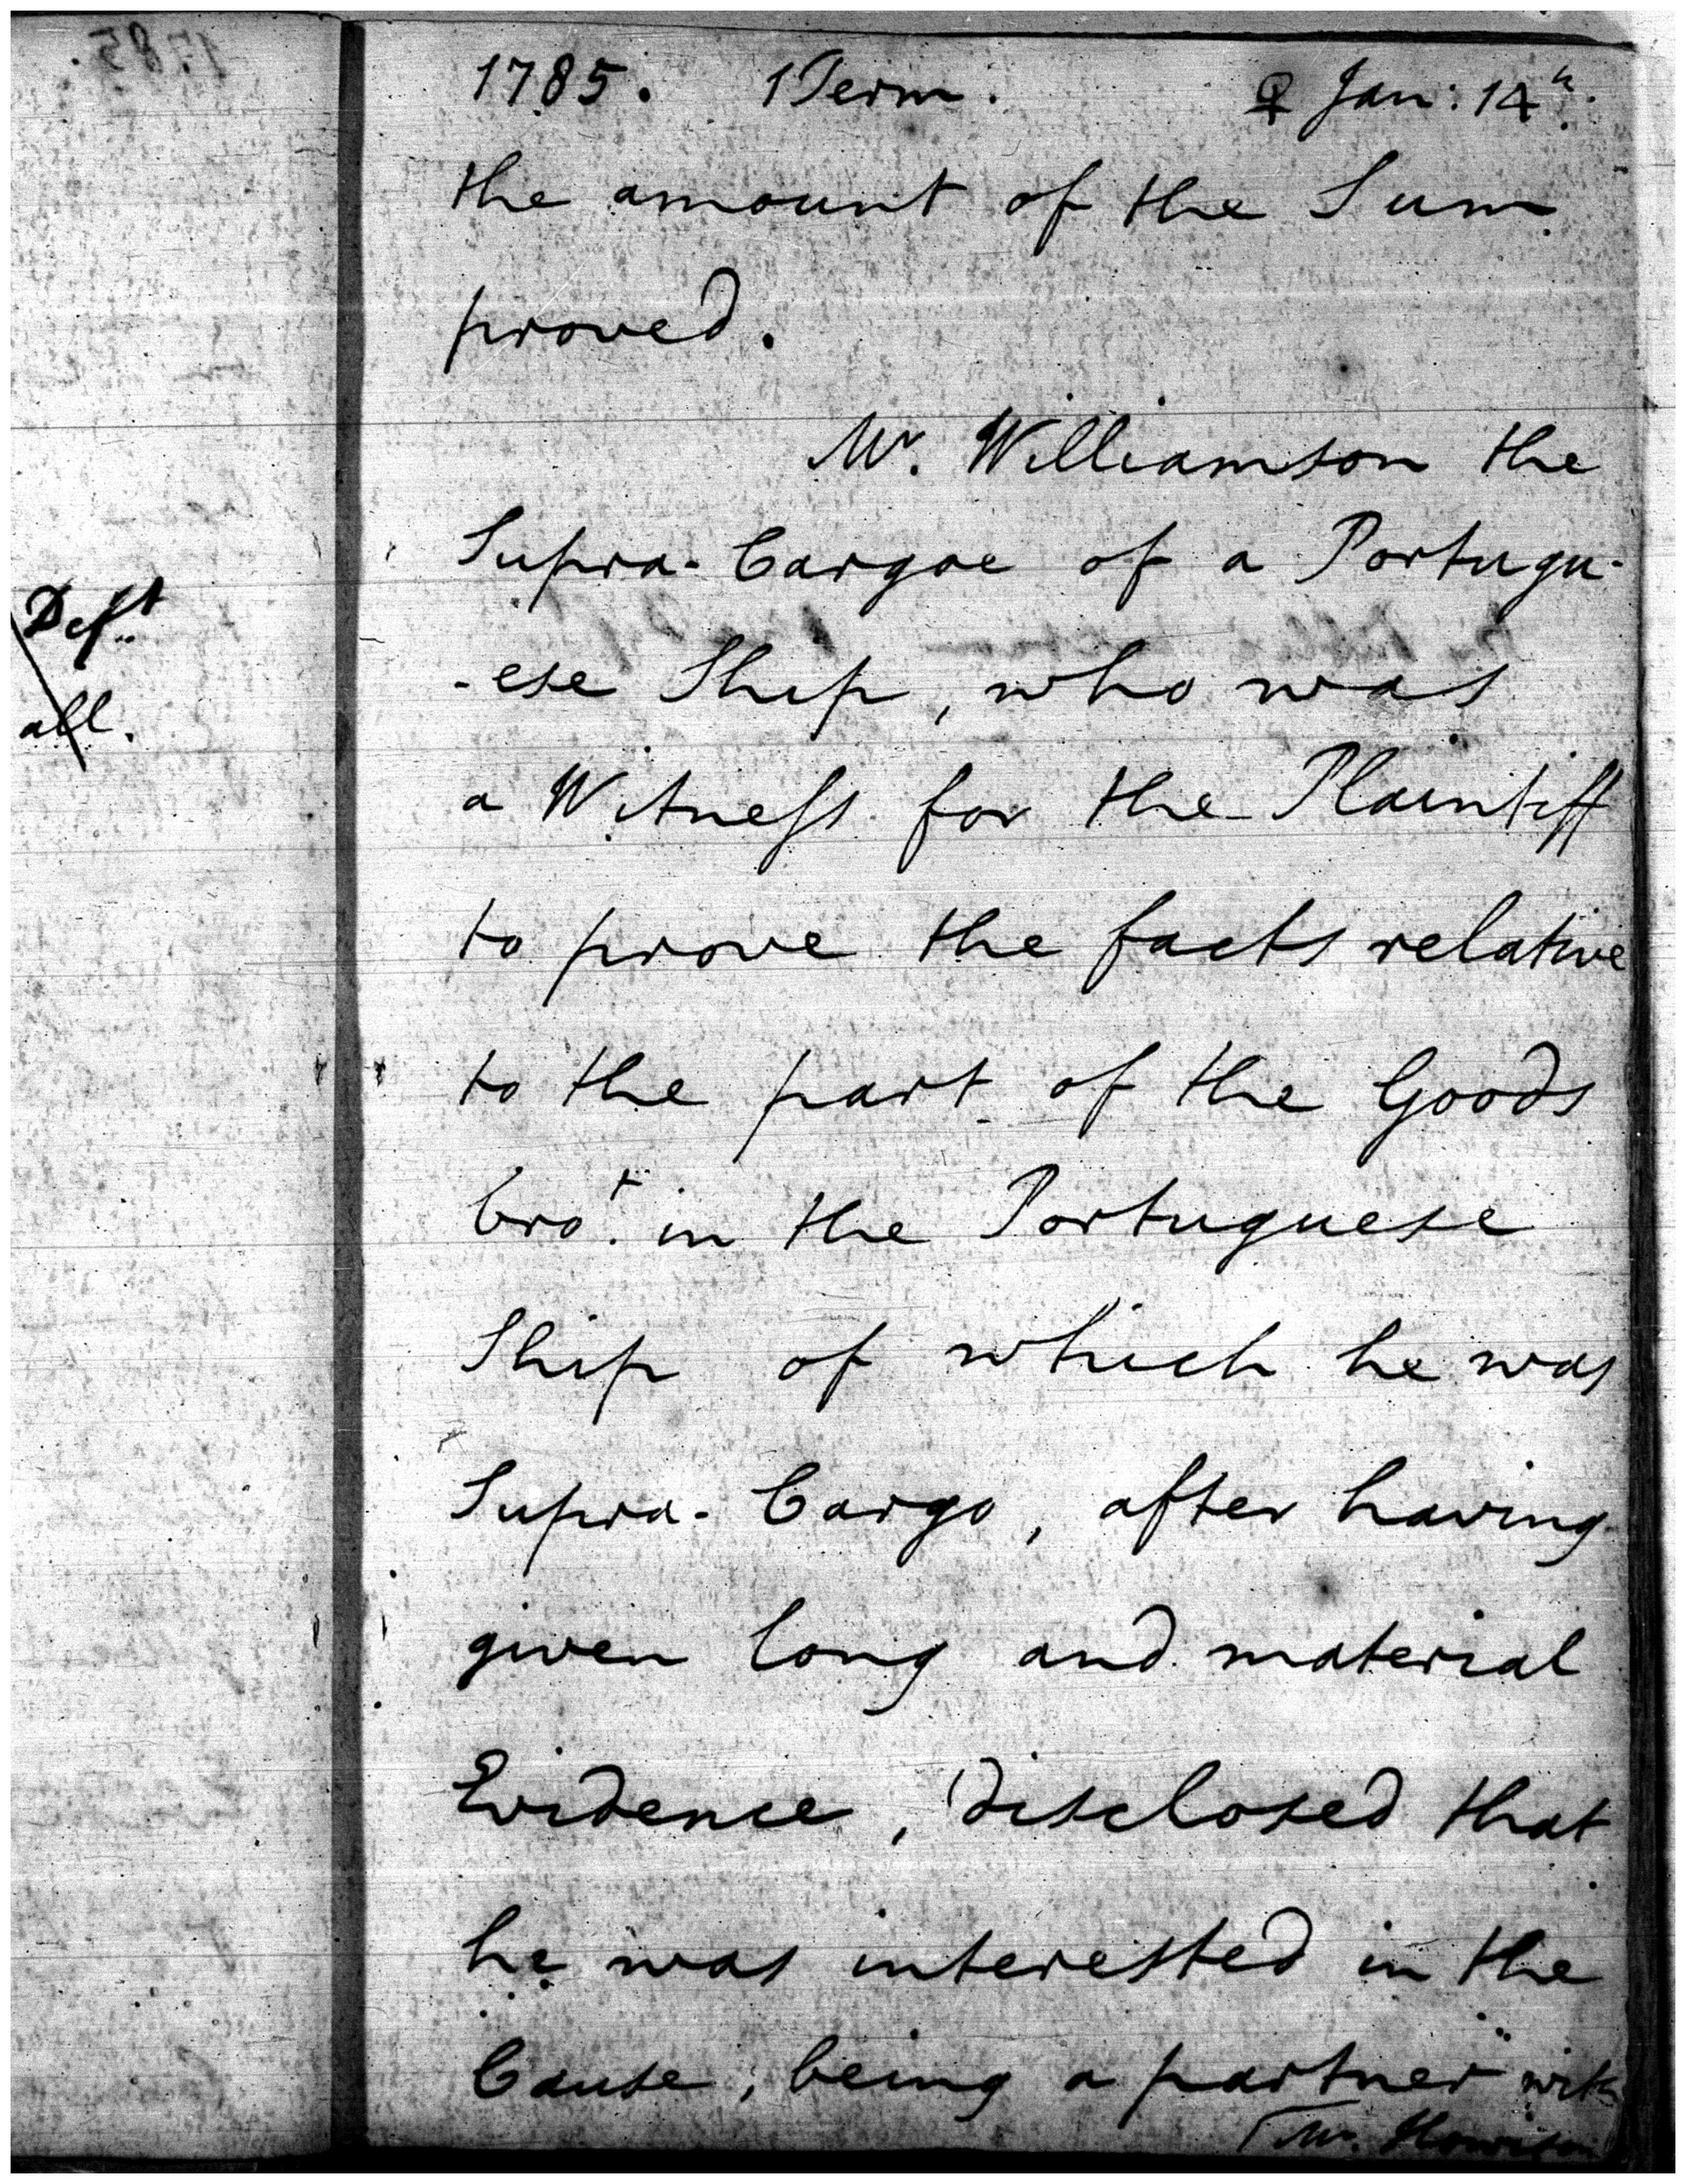 1785. 1 Term. ♀ Jan: 14th.
the amount of the Sum
proved.
Mr. Williamson the
Supra-Cargoe of a Portugu-
-ese Ship, who was
a Witness for the Plaintiff
to prove the facts relative
to the part of the Goods
bro.t in the Portuguese
Ship of which he was
Supra-Cargo, after having
given long and material
Evidence, disclosed that
he was interested in the
Cause, being a partner with
Mr.
Deft
all.